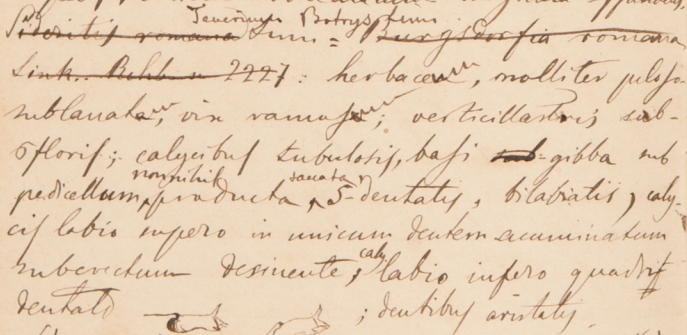 Sideritis romana Linn. = Burgsdorfia romana
Link.. Rchb n 2227: herbaceum, molliter piloso
sublanatum, vix ramosum; verticillastris sub-
5floris; calycibus tubulosis, basi sub-gibba sub
pedicellum nonnihil producta saccata, 5-dentatis, bilabiatis, caly-
cis labio supero in unicum dentem acuminatum
suberectum desinente, calycis labio infero quadri
dentato ; dentibus aristatis